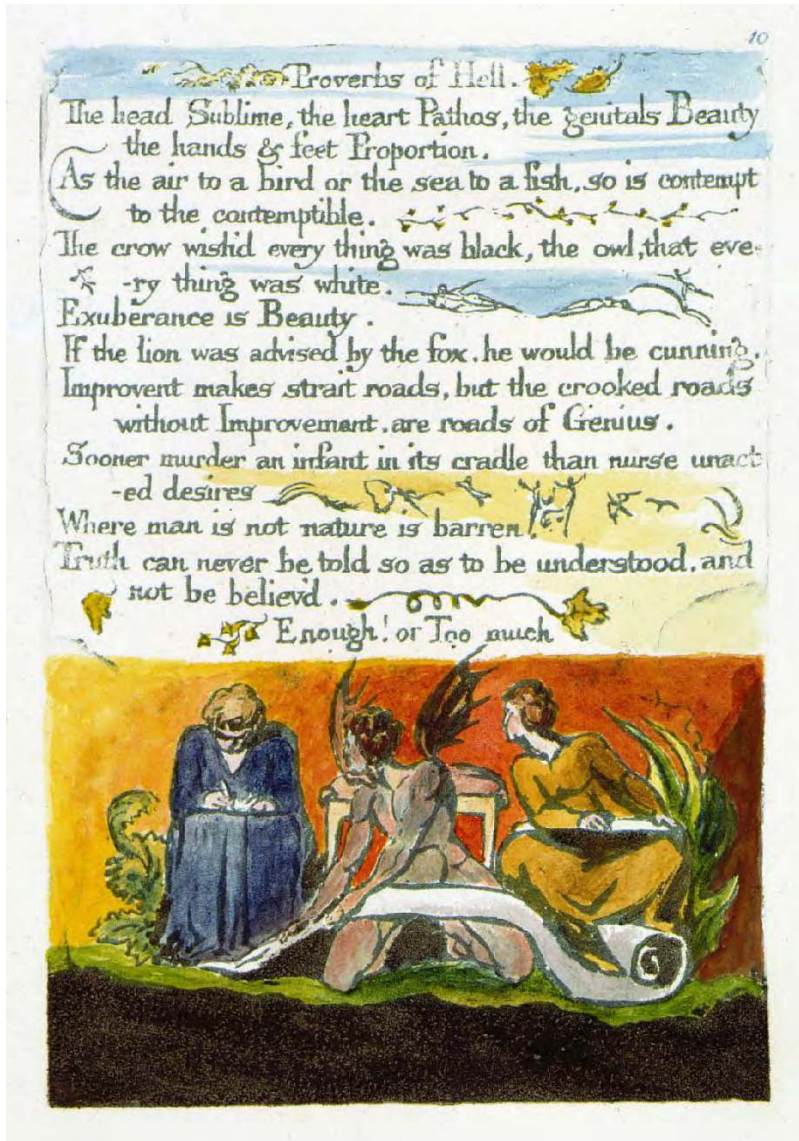 10
Proverbs of Hell.
The head Sublime, the heart Pathos, the genitals Beauty
the hands & feet Proportion.
As the air to a bird or the sea to a fish, so is contempt
to the contemptible.
The crow wish'd every thing was black, the owl, that eve-
-ry thing was white.
Exuberance is Beauty.
If the lion was advised by the fox. he would be cunning.
Improvent makes strait roads, but the crooked roads
without Improvement. are roads of Genius.
Sooner murder an infant in its cradle than nurse unact
-ed desires
Where man is not nature is barren.
Truth can never be told so as to be understood. and
not be believ'd.
Enough! or Too much